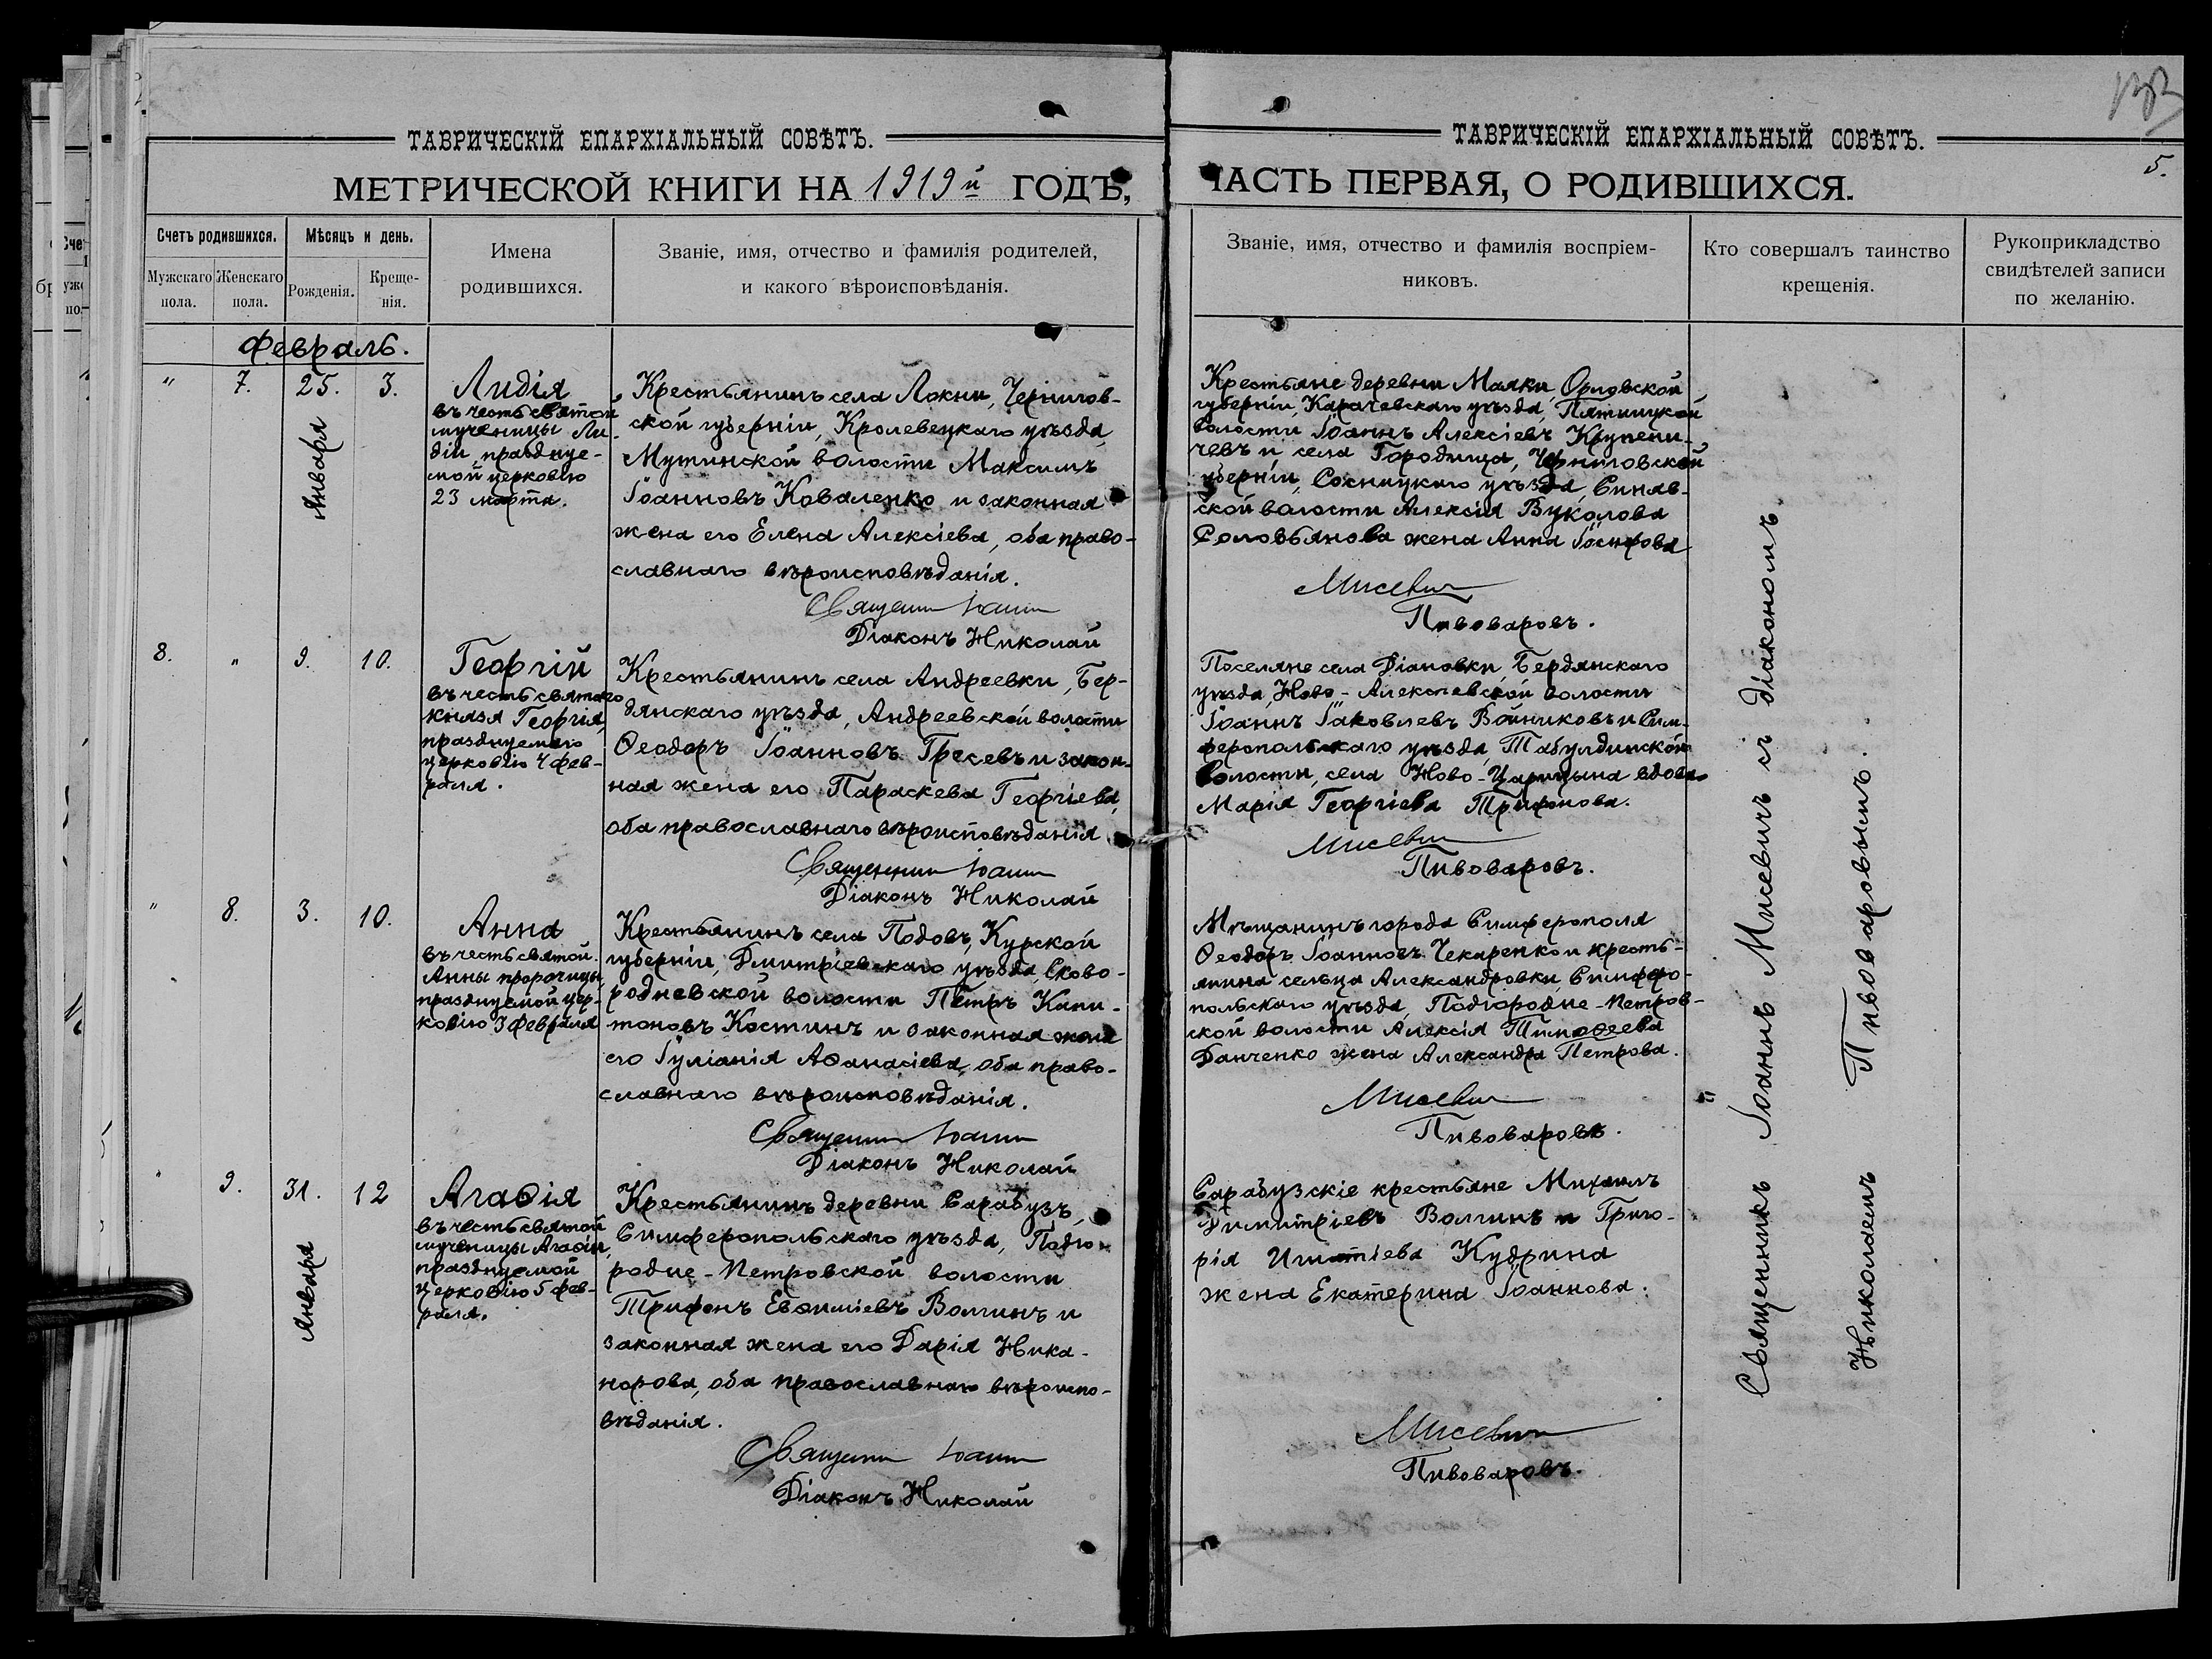 ТАВРИЧЕСКІЙ ЕПАРХІАЛЬНЫЙ СОВѢТЪ.
МЕТРИЧЕСКОЙ КНИГИ НА 1919й ГОДЪ,
Счетъ родившихся.
Мужскаго пола.
Женскаго пола.
Мѣсяцъ и день.
Рожденія.
Креще-
нія.
Имена
родившихся.
Званіе, имя, отчество и фамилія родителей,
и какого вѣроисповѣданія.
Февраль.
" 7. 25. 3.
Января
Лидія
въ честь святой
мученицы Ли-
діи, праздnуе-
мой церковію
23 марта.
Крестьянинъ села Локни, Чернигов-
ской губерніи, Кролевецкаго уѣзда,
Мутинской волости Максимъ
Іоанновъ Коваленко и законная
жена его Елена Алексіева, оба право-
славнаго вѣроисповѣданія.
Священ Іоанн
Діаконъ Николай
8. " 9. 10.
Георгій
въ честь святаго
князя Георгія,
празднуемаго
церковію 4 фев-
раля.
Крестьянинъ села Андреевки, Бер-
дянскаго уѣзда, Андреевской волости
Ѳеодоръ Іоанновъ Гресевъ и закон-
ная жена его Параскева Георгіева,
оба православнаго вѣроисповѣданія
Священник Іоанн
Діаконъ Николай
" 8. 3. 10.
Анна
въ честь святой
Анны пророчицы,
празднуемой цер-
ковію 3 февраля
Крестьянинъ села Подовъ, Курской
губерніи, Дмитріевскаго уѣзда, Сково-
родневской волости Петръ Капи-
тоновъ Костинъ и законная жена
его Іуліанія Аѳанасіева, оба право-
славнаго вѣроисповѣданія.
Священ Іоанн
Діаконъ Николай
" 9. 31. 12
Января
Агаѳія
въ честь святой
мученицы Агаѳіи,
празднуемой
церковію 5 фев-
раля.
Крестьянинъ деревни Сарабузъ,
Симферопольскаго уѣзда, Подго-
родне-Петровской волости
Трифонъ Евѳиміевъ Волчинъ и
законная жена его Дарія Ника-
норова, оба православнаго вѣроиспо-
вѣданія.
Священ Іоанн
Діаконъ Николай
ТАВРИЧЕСКІЙ ЕПАРХІАЛЬНЫЙ СОВѢТЪ.
5.
ЧАСТЬ ПЕРВАЯ, О РОДИВШИХСЯ.
Званіе, имя, отчество и фамилія воспріем-
никовъ.
Кто совершалъ таинство
крещенія.
Рукоприкладство
свидѣтелей записи
по желанію.
Крестьяне деревни Маяки, Орловской
губерніи, Карачевскаго уѣзда, Пятницкой
волости Іоаннъ Алексіевъ Крупени-
чевъ и села Городища, Черниговской
губерніи, Сосницкаго уѣзда, Синяв-
ской волости Алексія Вуколова
Соловьянова жена Анна Іосифова
Мисевич
Пивоваровъ.
Поселяне села Діановки, Бердянскаго
уѣзда, Ново-Алексѣевской волости
Іоаннъ Іаковлевъ Войниковъ и Сим-
феропольскаго уѣзда, Табулдинской
волости, села Ново-Царицына вдова
Марія Георгіева Трифонова.
Мисевич
Пивоваровъ.
Мѣщанинъ города Симферополя
Ѳеодоръ Іоанновъ Чекаренко и кресть-
янина сельца Александровки, Симферо-
польскаго уѣзда, Подгородне-Петров-
ской волости Алексія Тимоѳеева
Данченко жена Александра Петрова.
Мисевич
Пивоваровъ.
Сарабузскіе крестьяне Михаилъ
Димитріевъ Волчинъ и Григо-
рія Игнатіева Кудрина
жена Екатерина Іоаннова.
Мисевич
Пивоваровъ.
Священникъ Іоаннъ Мисевичъ съ діакономъ
Николаемъ Пивоваровымъ.